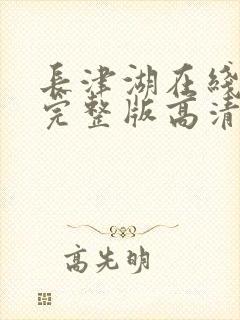 長津湖在綫
完整版高清
高先明